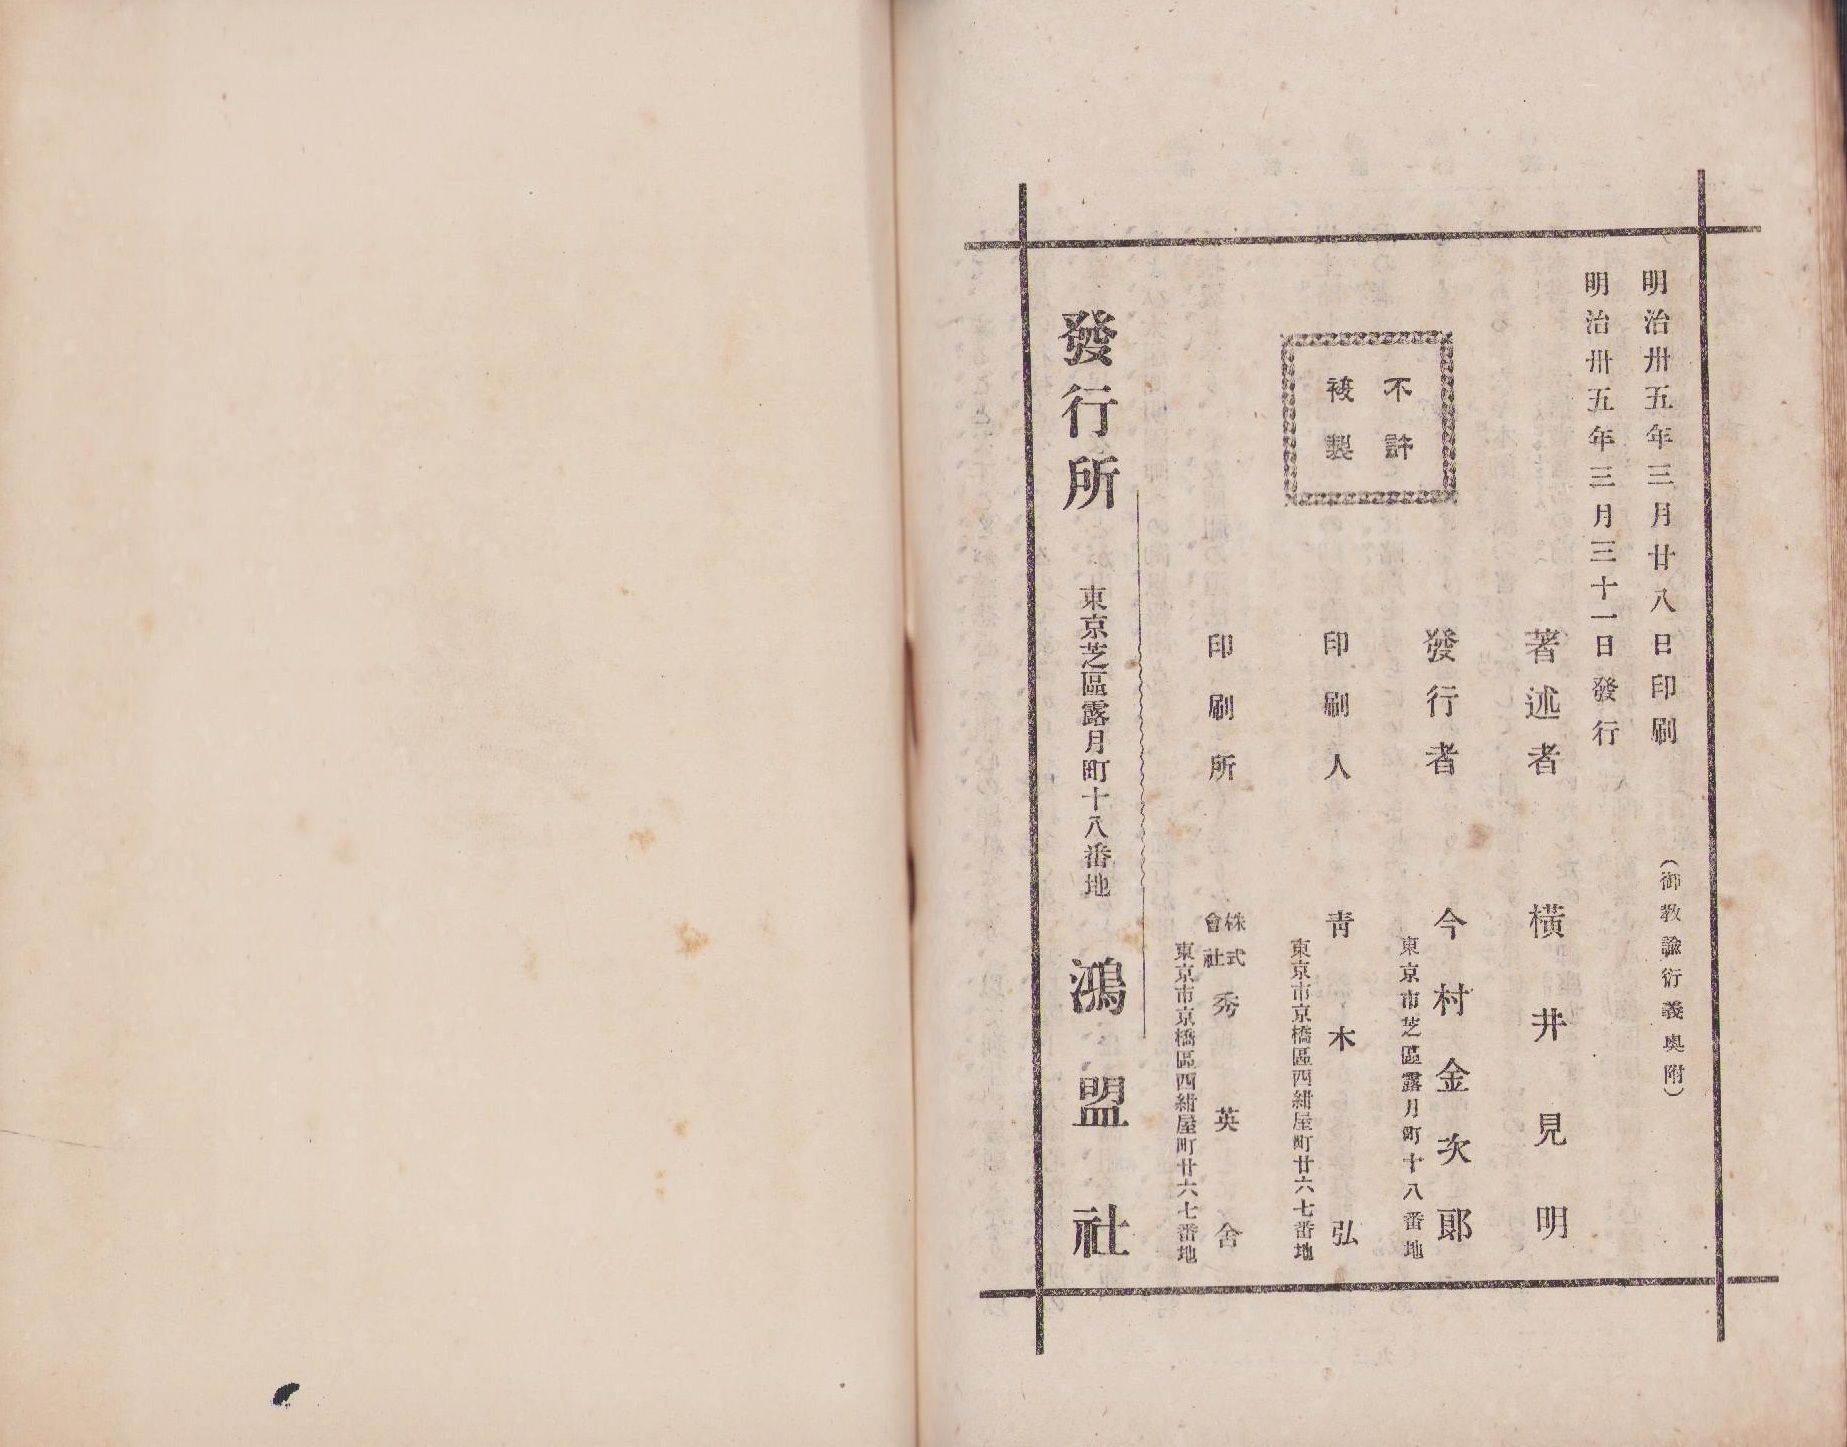 明治卅五年三月廿八日印刷
(御教諭衍義奥附)
明治卅五年三月三十一日發行
不許
複製
著述者 橫井見明
發行者 今村金次郎
東京市芝區露月町十八番地
印刷人 靑木弘
東京市京橋區西紺屋町廿六七番地
印刷所 株式會社 秀英舍
東京市京橋區西紺屋町廿六七番地
發行所 東京芝區露月町十八番地 鴻盟社